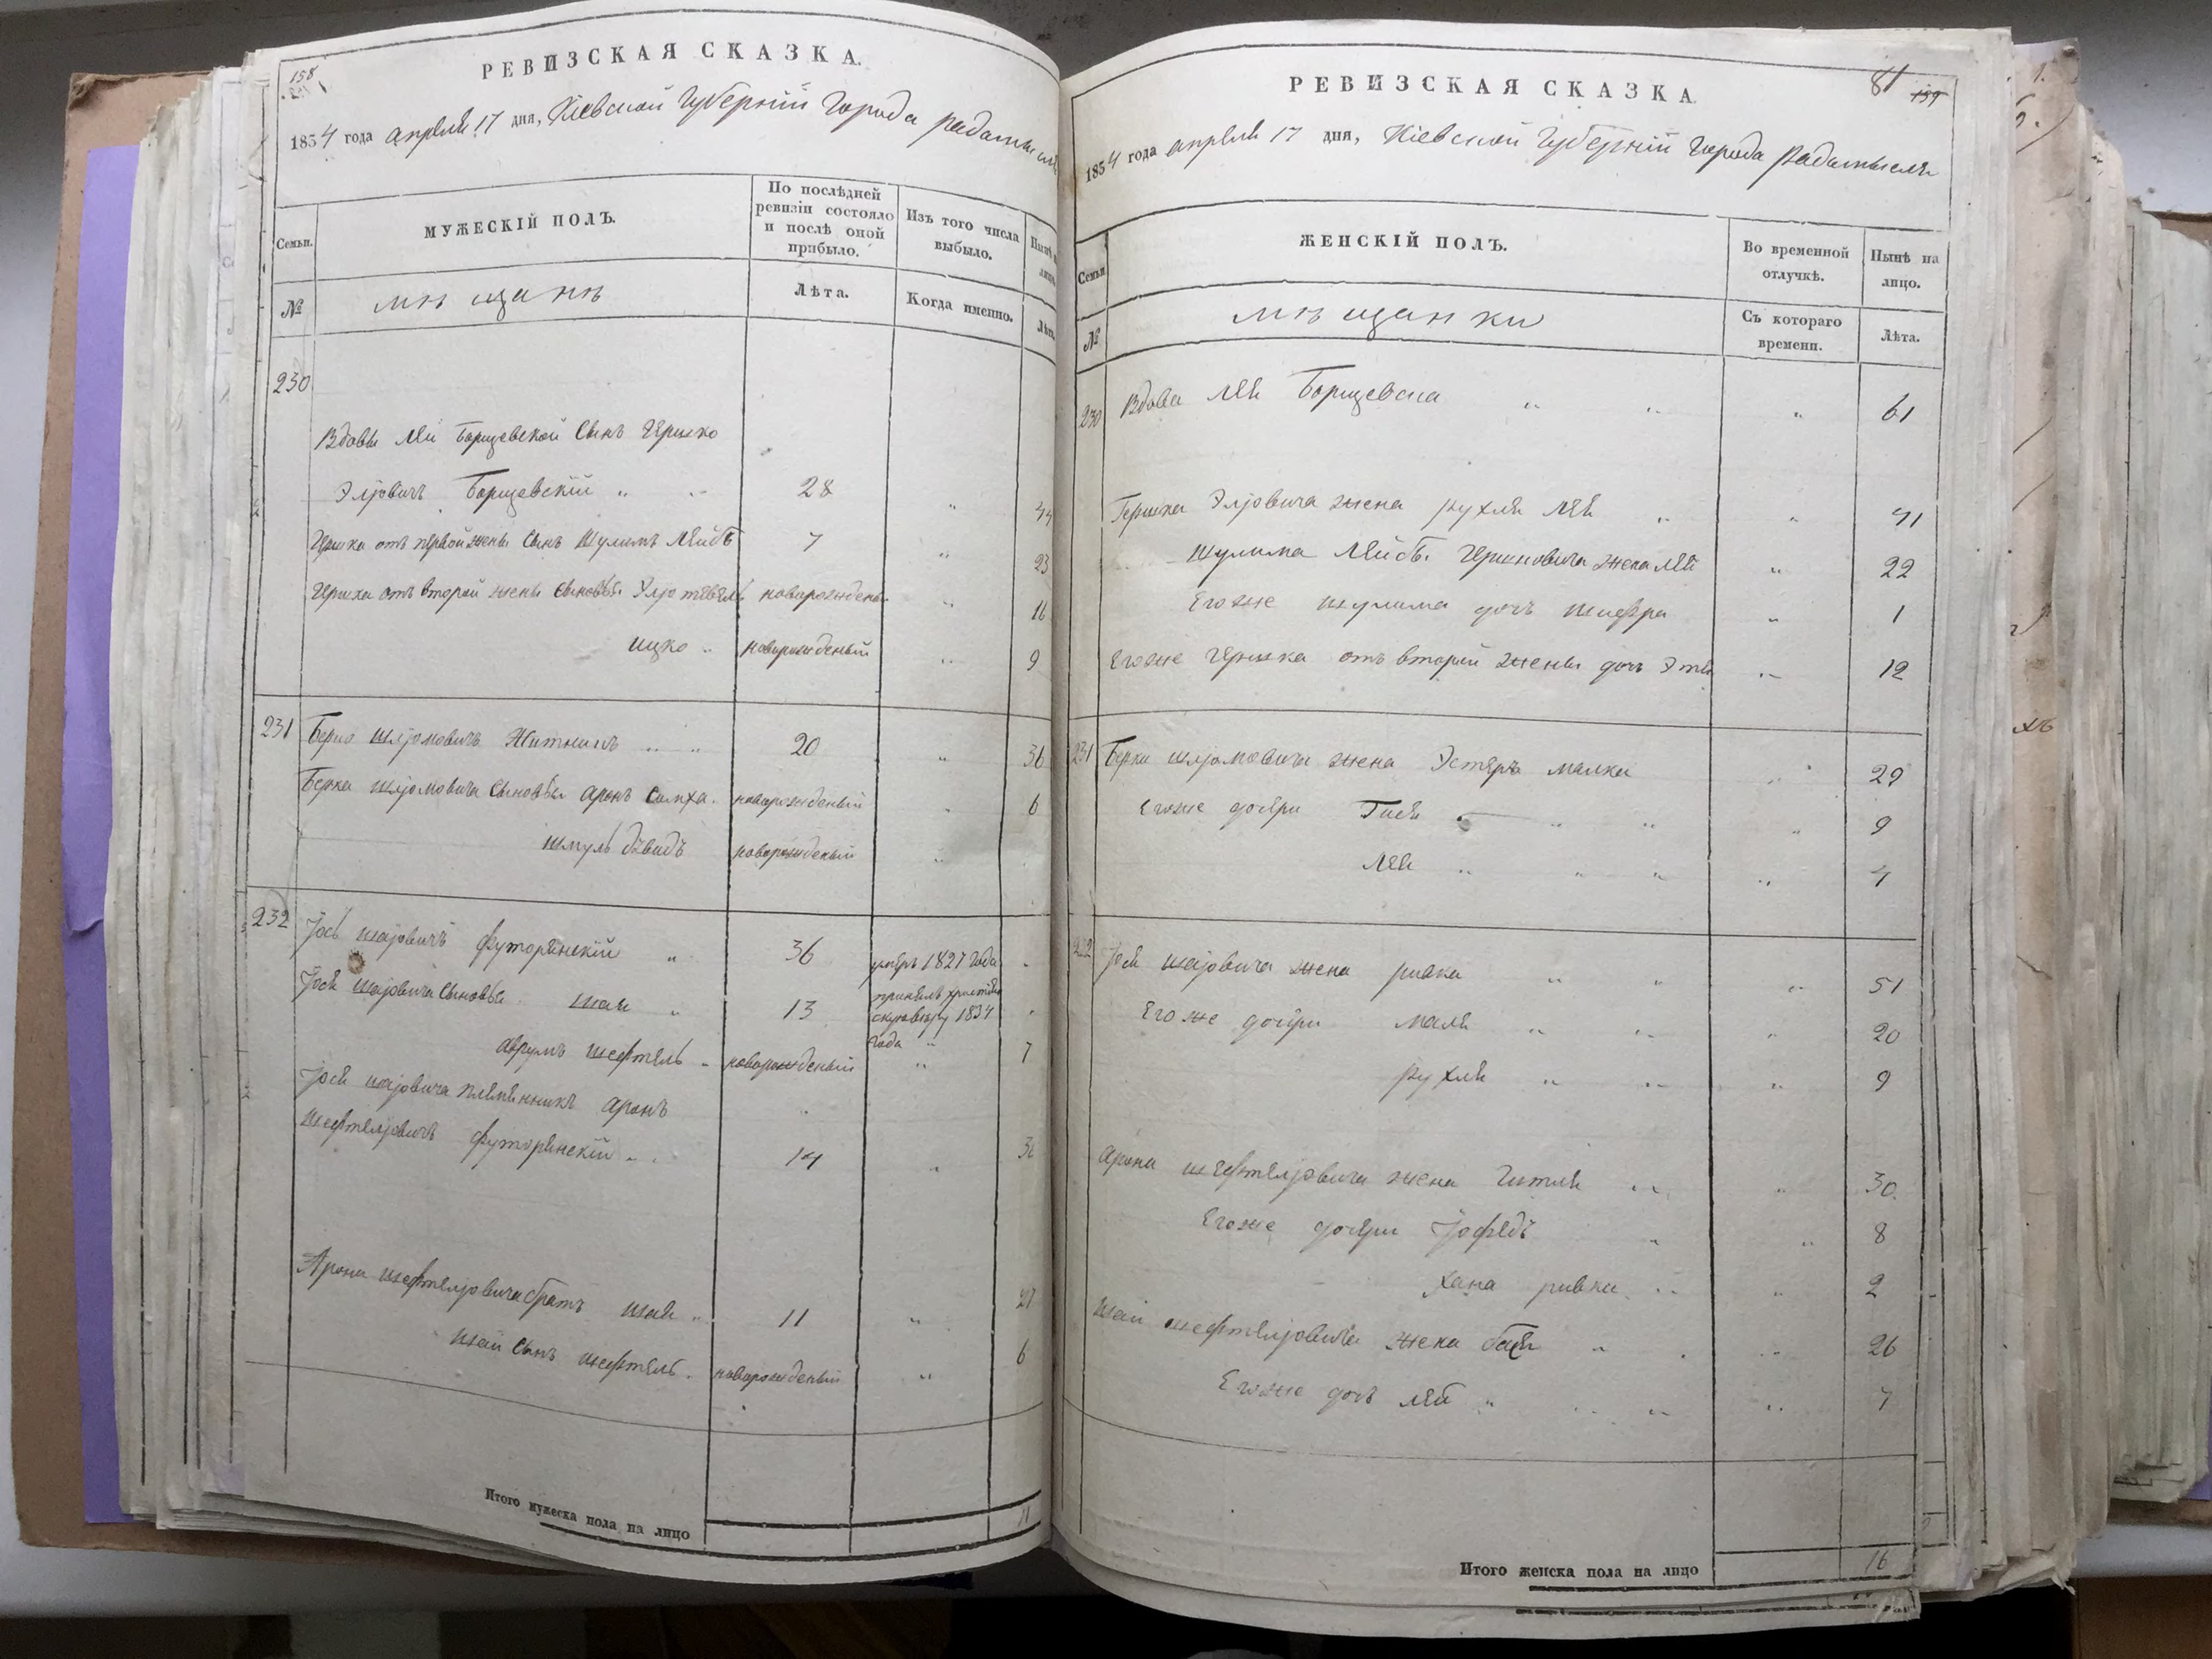 158
РЕВИЗСКАЯ СКАЗКА.
1854 года апреля 17 дня, Кіевской Губерніи Города Радомысля
Семьи.
МУЖЕСКІЙ ПОЛЪ.
По послѣдней ревизіи состояло и послѣ оной прибыло.
Изъ того числа выбыло.
Нынѣ
№
мѣщанъ
Лѣта.
Когда именно.
Лѣта.
230
Вдовы Леи Борщевской Сынъ Гершко
Эліовичъ Борщевскій " " 28 " 44
Гершка отъ первой жены Сынъ Шулимъ Лейбъ 7 " 23
Гершка отъ второй жены Сыновья новорожденный " 16
ицко " новорожденый " 9
231 Берко шліомовичъ Житникъ " " 20 " 36
Берка шліомовича Сыновья аронъ Симха новорожденый " 6
шмуль дѣвидъ новорожденый "
232 Іось шаіовичъ футорянскій " 36 умеръ 1827 года "
Іося шаіовича Сыновья шая " 13 принялъ христіан
скую вѣру 1834 "
года "
аврумъ шефтель " новорожденый " 7
Іося шаіовича племѣнникъ аронъ
шефтеліовичъ футорянскій " " 14 "
Арона шефтеліовича братъ шая " 11 " 27
шаи Сынъ шефтель " новорожденый " 6
Итого мужеска пола на лицо 11
81
159
РЕВИЗСКАЯ СКАЗКА.
1854 года апреля 17 дня, Кіевской Губерніи Города Радомысля
Семьи
ЖЕНСКІЙ ПОЛЪ.
Во временной отлучкѣ.
Нынѣ на лицо.
№
мѣщанки
Съ котораго времени.
Лѣта.
230 Вдова Лея Борщевска " " " 61
Гершка Эліовича жена Рухля Лея " " 41
Шулима Лейбы Гершковича жена Лея " 22
Егоже шулима дочь шифра " 1
Егоже Гершка отъ второй жены дочь " 12
231 Берки шліомовича жена Эстеръ малка " " 29
Егоже дочери Гися " " " 9
Лея " " " " 4
232 Іося шаіовича жена ривка " " " 51
Егоже дочери маля " " " 20
Рухля " " " 9
арона шефтеліовича жена Гитля " " " 30
Егоже дочери " " 8
хана ривка " " " 2
шаи шефтеліовича жена бася " " " 26
Егоже дочь лея " " " "
Итого женска пола на лицо 16